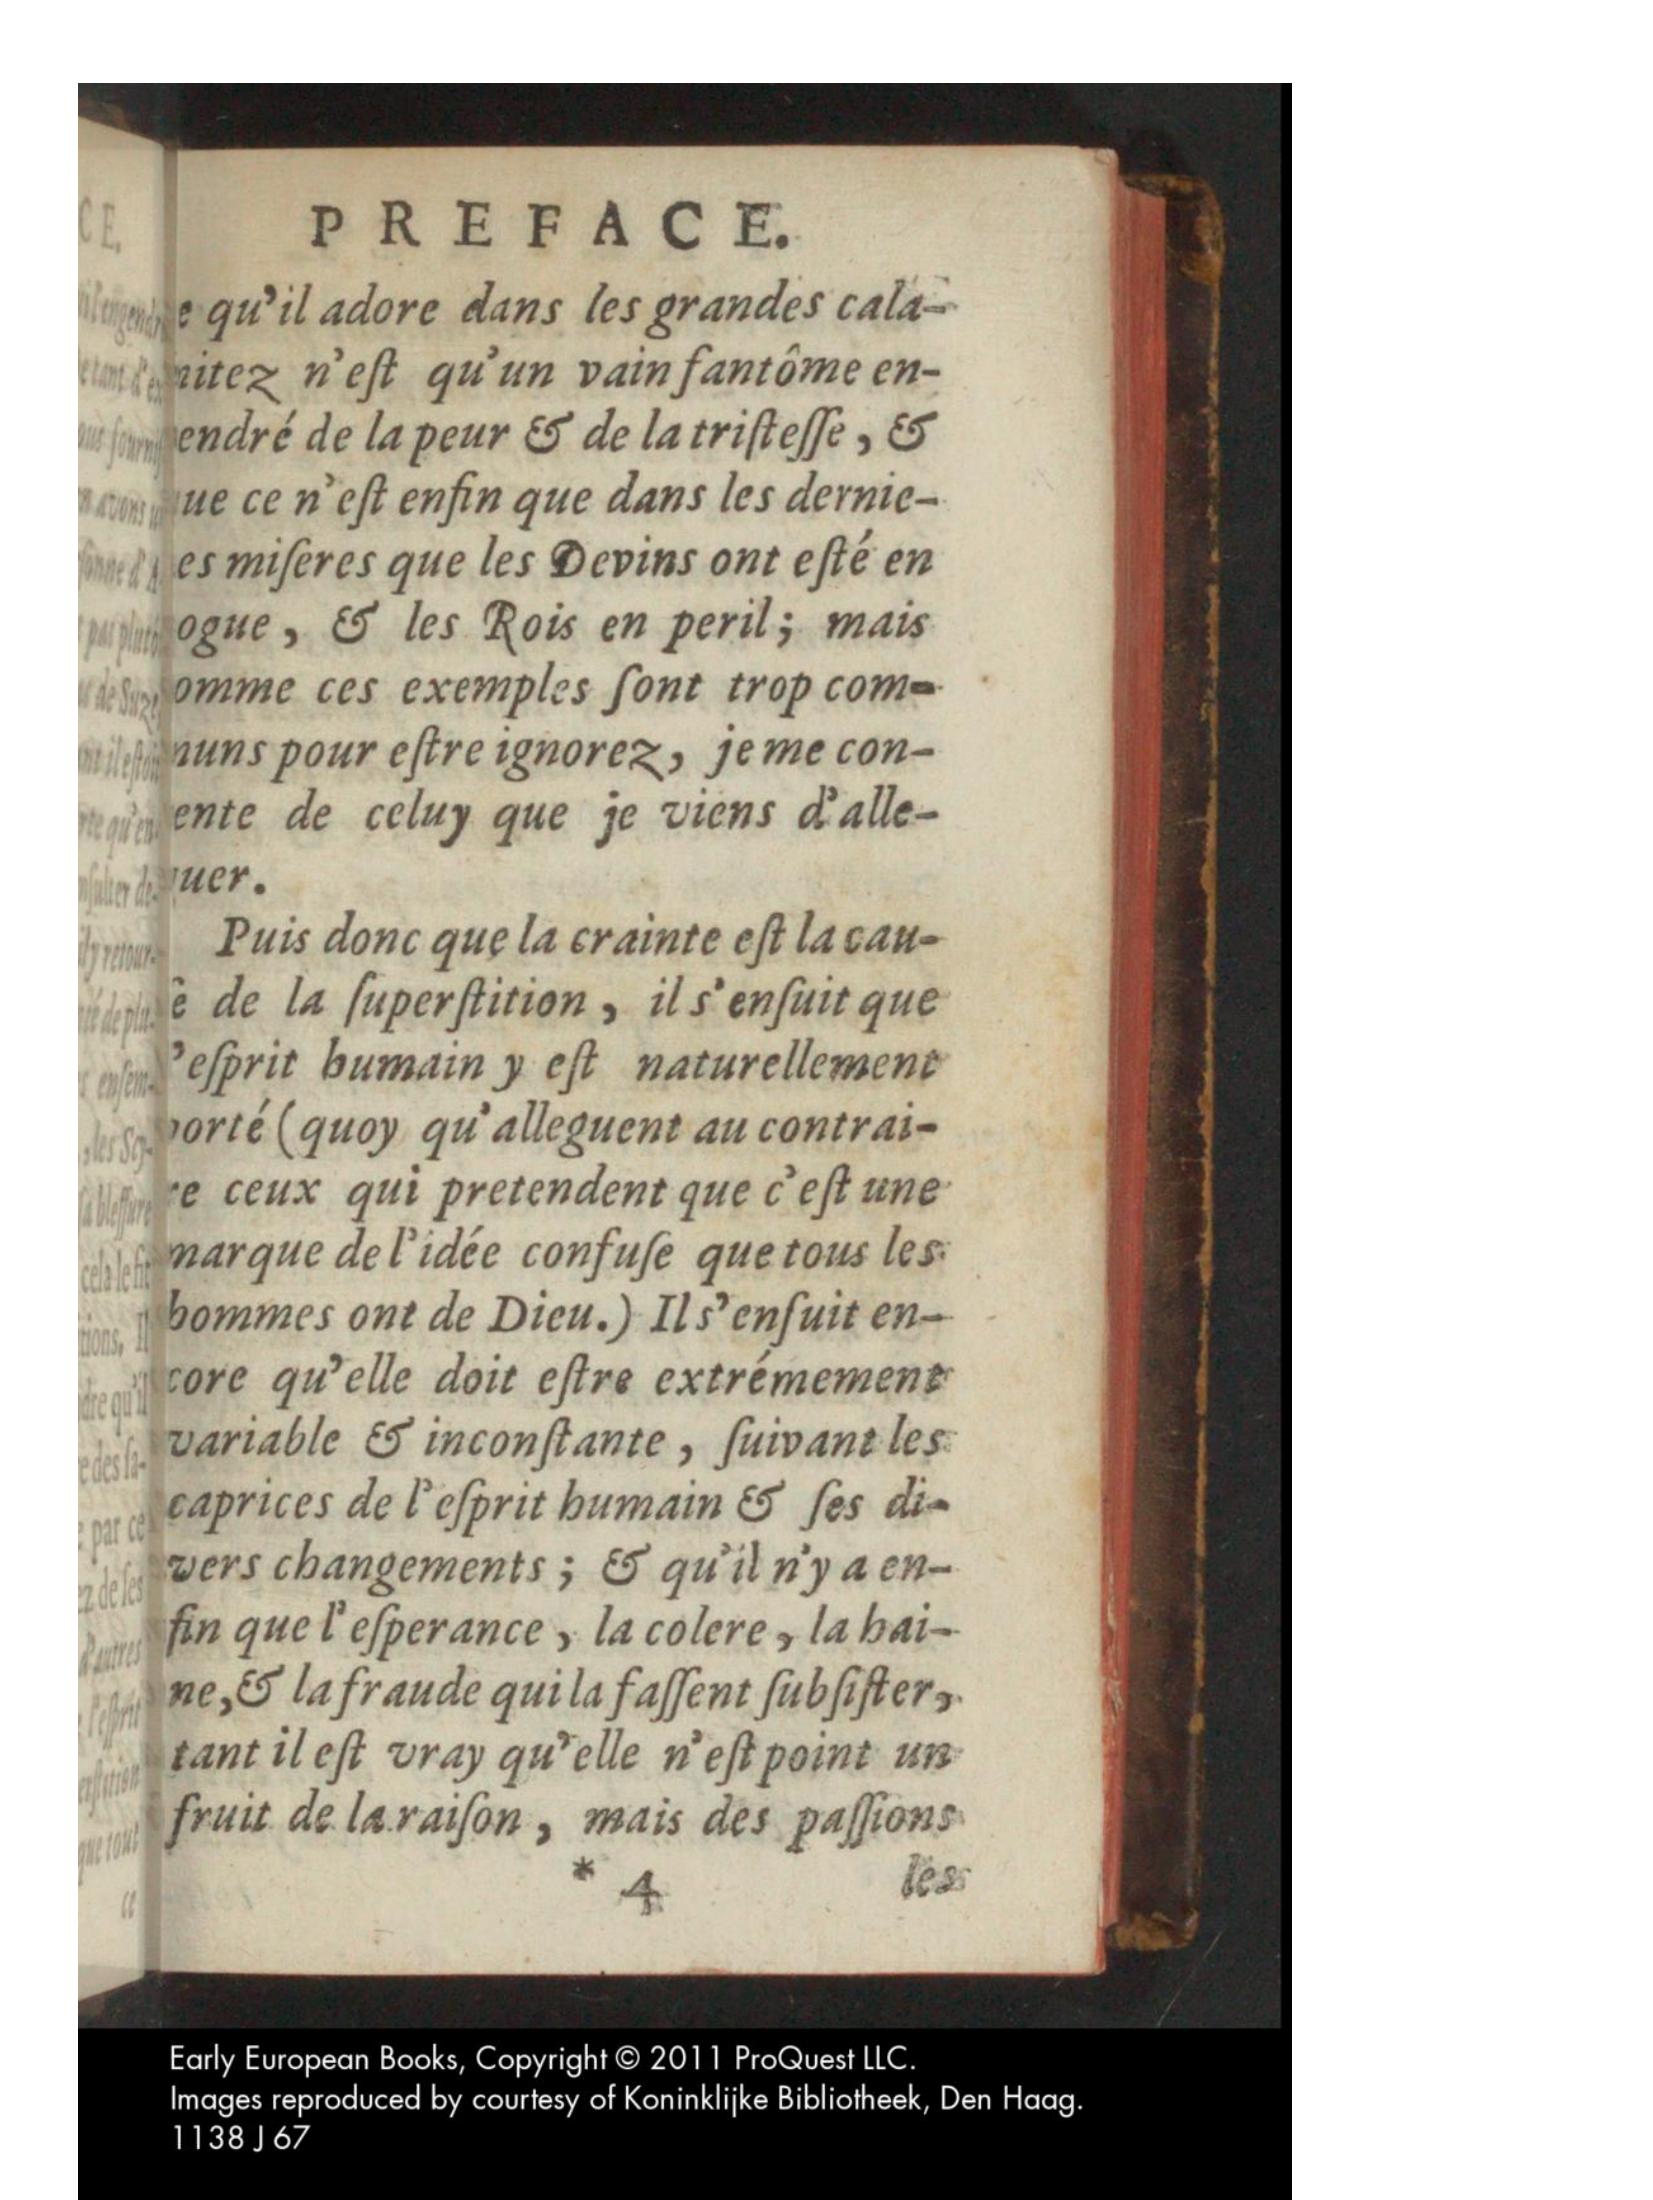 PREFACE.
e qu'il adore dans les grandes cala-
mitez n'eſt qu'un vain fantôme en-
endré de la peur & de la triſteſſe, &
ue ce n'eſt enfin que dans les dernie-
es miſeres que les Devins ont eſté en
ogue, & les Rois en peril; mais
omme ces exemples ſont trop com-
muns pour eſtre ignorez, je me con-
ente de celuy que je viens d'alle-
uer.
Puis donc que la crainte eſt la cau-
e de la ſuperſtition, il s'enſuit que
'eſprit humain y eſt naturellement
porté (quoy qu'alleguent au contrai-
re ceux qui pretendent que c'eſt une
marque de l'idée confuſe que tous les
hommes ont de Dieu.) Il s'enſuit en-
core qu'elle doit eſtre extrémement
variable & inconſtante, ſuivant les
caprices de l'eſprit humain & ſes di-
vers changements; & qu'il n'y a en-
fin que l'eſperance, la colere, la hai-
ne, & la fraude qui la faſſent ſubſiſter,
tant il eſt vray qu'elle n'eſt point un
fruit de la raiſon, mais des paſſions
* 4 les
Early European Books, Copyright © 2011 ProQuest LLC.
Images reproduced by courtesy of Koninklijke Bibliotheek, Den Haag.
1138 J 67